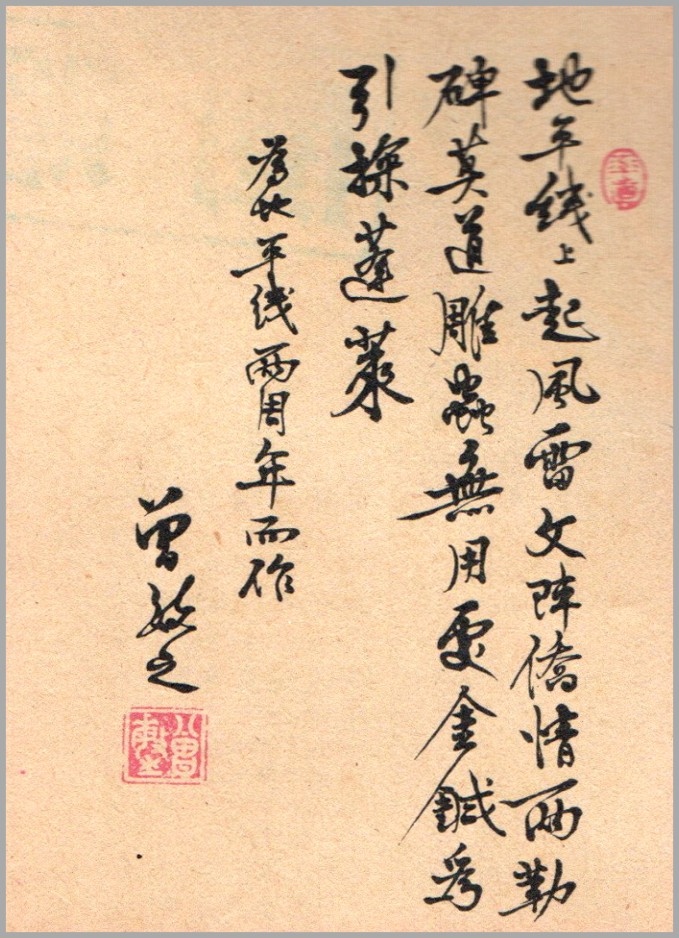 地平线上起風雷文阵僑情两勒
碑莫道雕蟲無用處金鍼為
引探蓬萊
為地平线两周年而作
曾敏之